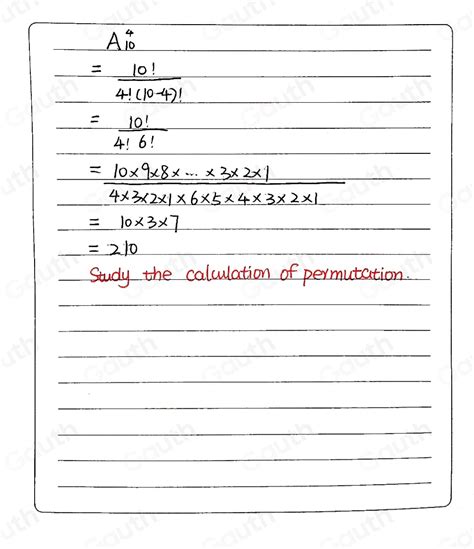 A⁴₁₀
= 10! / 4!(10-4)!
= 10! / 4! 6!
= 10×9×8×...×3×2×1 / 4×3×2×1×6×5×4×3×2×1
= 10×3×7
= 210
Study the calculation of permutation.
Gauth